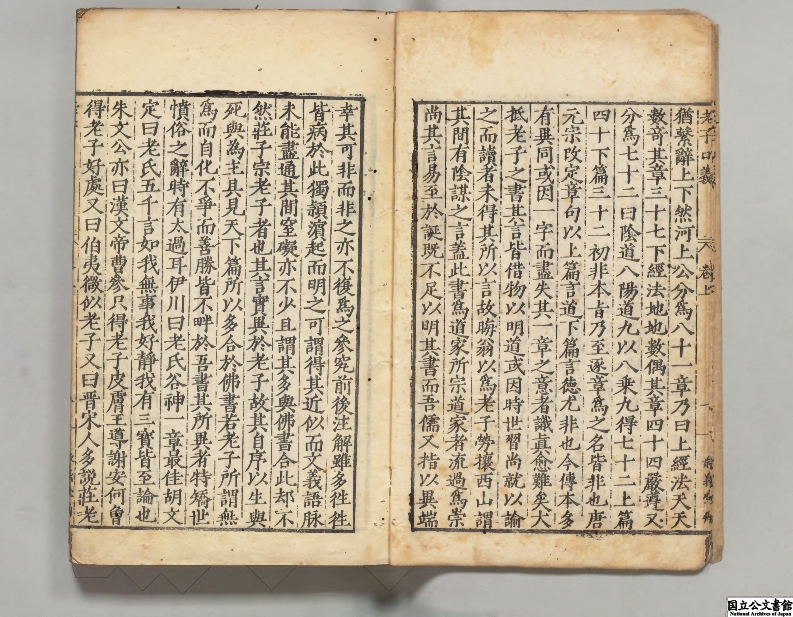 猶繫辭上下然河上公分爲八十一章乃曰上經法天天
數竒其章三十七下經法地地數偶其章四十四嚴遵又
分爲七十二曰陰道八陽道九以八乗九得七十二上篇
四十下篇三十二初非本旨乃至逐章爲之名皆非也唐
元宗改定章句以上篇言道下篇言徳尤非也今傳本多
有異同或因一字而盡失其一章之意者識真愈難矣大
抵老子之書其言皆借物以明道或因時世習尚就以諭
之而讀者未得其所以言故晦翁以爲老子勞攘西山謂
其間有陰謀之言蓋此書爲道家所宗道家者流過爲崇
尚其言易至於誕既不足以明其書而吾儒又指以異端
幸其可非而非之亦不復爲之參究前後注解雖多徃徃
皆病於此獨頴濵起而明之可謂得其近似而文義語脉
未能盡通其間窒礙亦不少且謂其多與佛書合此却不
然莊子宗老子者也其言實異於老子故其自序以生與
死與爲主具見天下篇所以多合於佛書若老子所謂無
爲而自化不爭而善勝皆不畔於吾書其所異者特矯世
憤俗之辭時有太過耳伊川曰老氏谷神一章最佳胡文
定曰老氏五千言如我無事我好靜我有三寳皆至論也
朱文公亦曰漢文帝曹參只得老子皮膚王導謝安何曾
得老子好處又曰伯夷微似老子又曰晋宋人多說莊老
老子口義
卷上
国立公文書館
National Archives of Japan